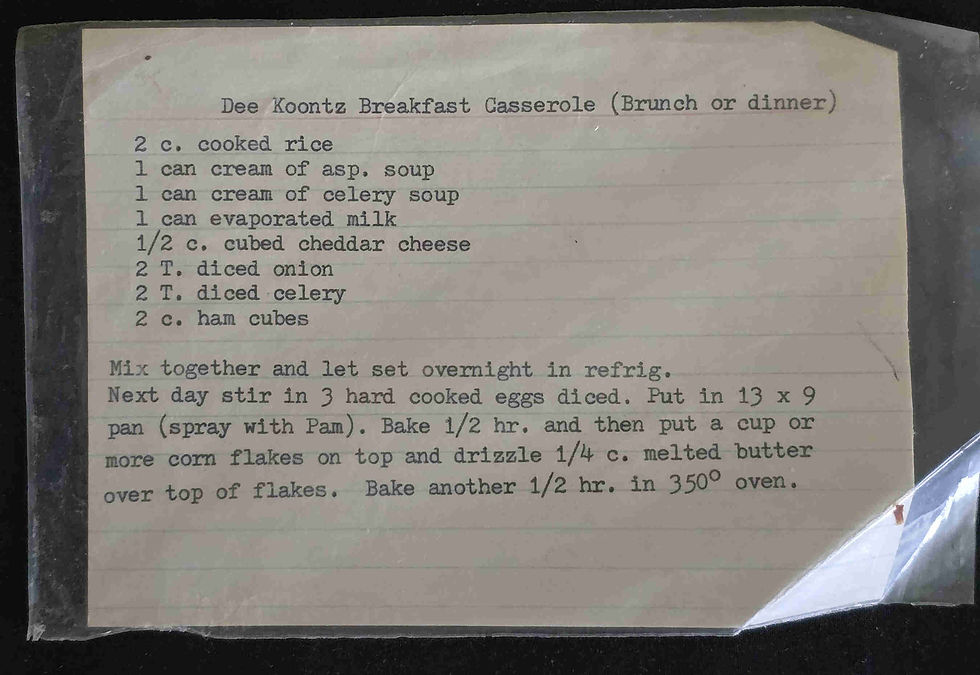 Dee Koontz Breakfast Casserole (Brunch or dinner)
2 c. cooked rice
1 can cream of asp. soup
1 can cream of celery soup
1 can evaporated milk
1/2 c. cubed cheddar cheese
2 T. diced onion
2 T. diced celery
2 c. ham cubes
Mix together and let set overnight in refrig.
Next day stir in 3 hard cooked eggs diced. Put in 13 x 9
pan (spray with Pam). Bake 1/2 hr. and then put a cup or
more corn flakes on top and drizzle 1/4 c. melted butter
over top of flakes. Bake another 1/2 hr. in 350° oven.